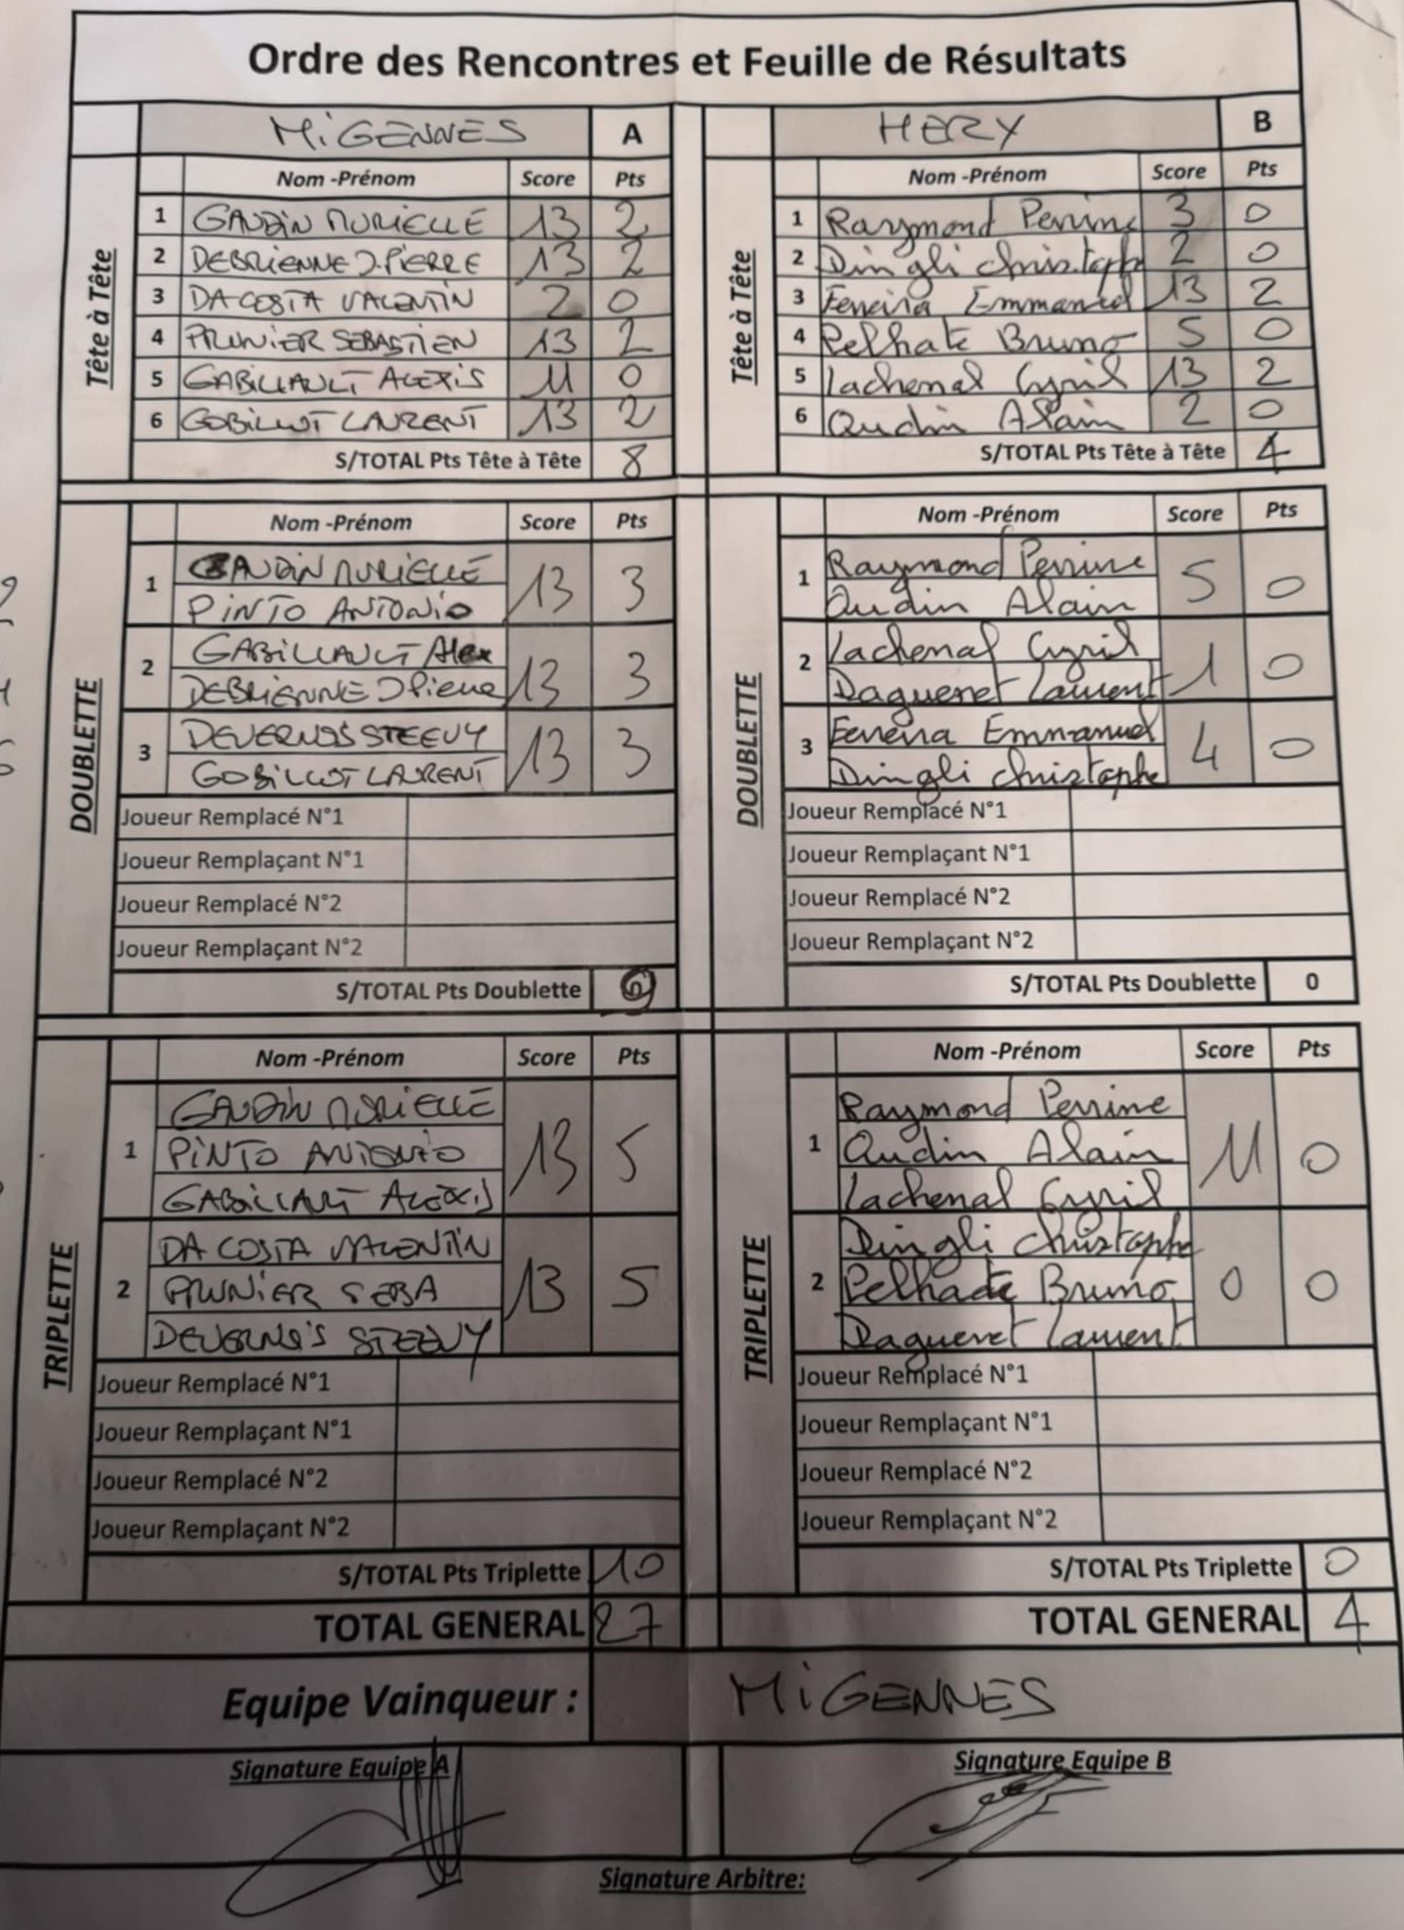 Ordre des Rencontres et Feuille de Résultats
MiGENNES A
HERY B
Tête à Tête
Nom -Prénom Score Pts
1 GAUDiN MURIELLE 13 2
2 DEBRIENNE J.PiERRE 13 2
3 DA COSTA VALENTiN 2 0
4 PRUNiER SEBASTiEN 13 2
5 GABiLLAULT ALEXiS 11 0
6 GOBiLLOT LAURENT 13 2
S/TOTAL Pts Tête à Tête 8
Tête à Tête
Nom -Prénom Score Pts
1 Raymond Perrine 3 0
2 Dingli Christophe 2 0
3 Ferreira Emmanuel 13 2
4 Pelhate Bruno 5 0
5 Lachenal Cyril 13 2
6 Oudin Alain 2 0
S/TOTAL Pts Tête à Tête 4
DOUBLETTE
Nom -Prénom Score Pts
1 GAUDiN MURiELLE 13 3
PiNTO ANTONiO
2 GABiLLAULT Alex 13 3
DEBRiENNE J Pierre
3 DEVERNOiS STEEVY 13 3
GOBiLLOT LAURENT
Joueur Remplacé N°1
Joueur Remplaçant N°1
Joueur Remplacé N°2
Joueur Remplaçant N°2
S/TOTAL Pts Doublette 9
DOUBLETTE
Nom -Prénom Score Pts
1 Raymond Perrine 5 0
Oudin Alain
2 Lachenal Cyril 1 0
Dagueret Laurent
3 Ferreira Emmanuel 4 0
Dingli Christophe
Joueur Remplacé N°1
Joueur Remplaçant N°1
Joueur Remplacé N°2
Joueur Remplaçant N°2
S/TOTAL Pts Doublette 0
TRIPLETTE
Nom -Prénom Score Pts
1 GAUDiN MURiELLE 13 5
PiNTO ANTONiO
GABiLLAULT ALEXiS
2 DA COSTA VALENTiN 13 5
PRUNiER SEBA
DEVERNOiS STEEVY
Joueur Remplacé N°1
Joueur Remplaçant N°1
Joueur Remplacé N°2
Joueur Remplaçant N°2
S/TOTAL Pts Triplette 10
TOTAL GENERAL 27
TRIPLETTE
Nom -Prénom Score Pts
1 Raymond Perrine 11 0
Oudin Alain
Lachenal Cyril
2 Dingli Christophe 0 0
Pelhate Bruno
Dagueret Laurent
Joueur Remplacé N°1
Joueur Remplaçant N°1
Joueur Remplacé N°2
Joueur Remplaçant N°2
S/TOTAL Pts Triplette 0
TOTAL GENERAL 4
Equipe Vainqueur : MiGENNES
Signature Equipe A
Signature Equipe B
Signature Arbitre: